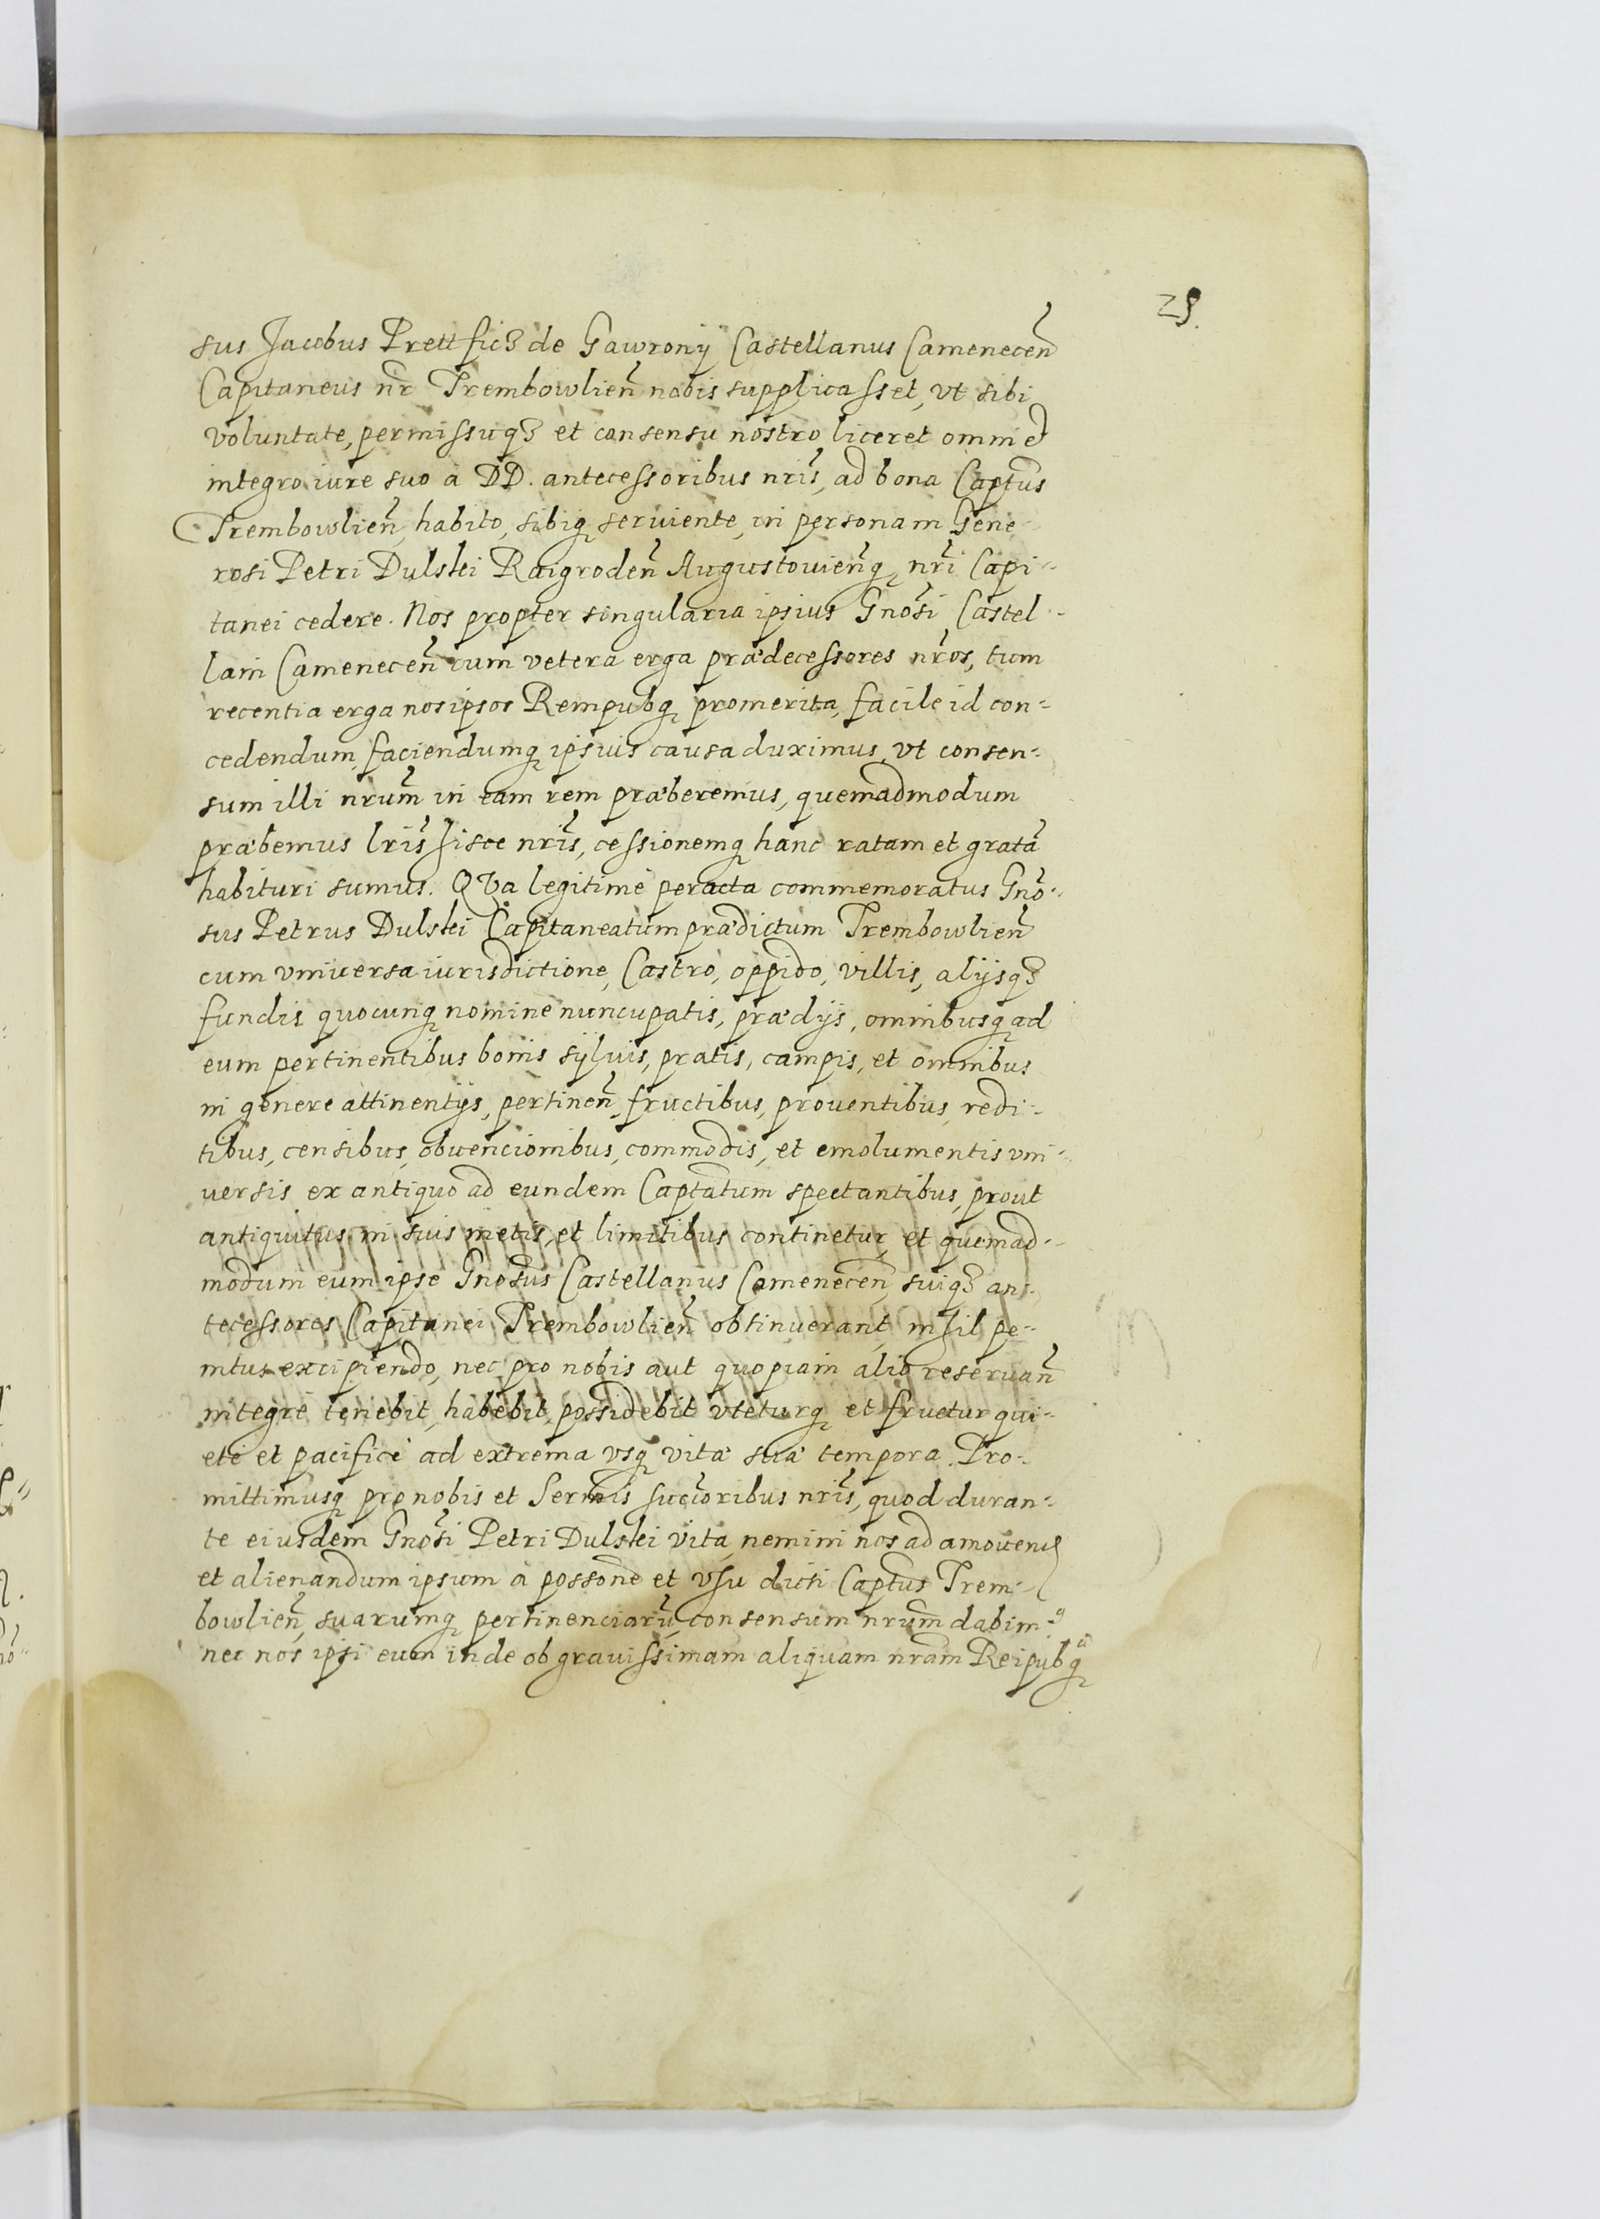 25.
sus Jacobus Prettficz de Gawrony Castellanus Camenecen̄
Capitaneus nr̄ Trembowlien̄ nobis supplicasset, vt sibi
voluntate, permissuq3 et consensu nostro liceret omni et
integro iure suo à DD. antecessoribus nrīs, ad bona Captūs
Trembowlien̄, habito, sibiq3 seruiente, in personam Gene-
rosi Petri Dulski Raigroden̄ Augustouien̄q3 nrī Capi-
tanei cedere. Nos propter singularia ipsius Gnōsi Castel-
lani Camenecen̄ cum vetera erga prædecessores nrōs, tum
recentia erga nos ipsos Rempubq3 promerita, facile id con-
cedendum, faciendumq3 ipsius causa duximus, vt consen-
sum illi nrūm in eam rem præberemus, quemadmodum
præbemus lrīs hisce nrīs, cessionemq3 hanc ratam et gratā
habituri sumus. QVa legitimè peracta commemoratus Gnō-
sus Petrus Dulski Capitaneatum prædictum Trembowlien̄
cum vniuersa iurisdictione, Castro, oppido, villis, alijsq3
fundis quocunq3 nomine nuncupatis, prædijs, omnibusq3 ad
eum pertinentibus bonis sÿluis, pratis, campis, et omnibus
in genere attinentijs, pertinen̄, fructibus, prouentibus, redi-
tibus, censibus, obuencionibus, commodis, et emolumentis vni-
uersis ex antiquo ad eundem Captātum spectantibus, prout
antiquitus in suis metis, et limitibus continetur, et quemad-
modum eum ipse Gnosūs Castellanus Camenecen̄, suiq3 an-
tecessores Capitanei Trembowlien̄ obtinuerant, nihil pe-
nitus excipiendo, nec pro nobis aut quopiam alio reseruan̄
integrè tenebit, habebit, possidebit vteturq3 et fruetur qui-
etè et pacificè ad extrema vsq3 vitæ suæ tempora. Pro-
mittimusq3 pro nobis et Sermīs succōribus nrīs, quod duran-
te eiusdem Gnōsi Petri Dulski vita, nemini nos ad amouend
et alienandum ipsum à possonē et vsu dicti Captūs Trem-
bowlien̄, suarumq3 pertinenciarū, consensum nrūm dabim9
nec nos ipsi eum inde ob grauissimam aliquam nrām Reipubq3